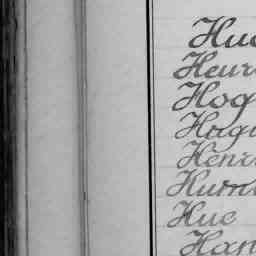 Huc
Heur
Hog
Hugu
Henr
Hum
Hue
Han